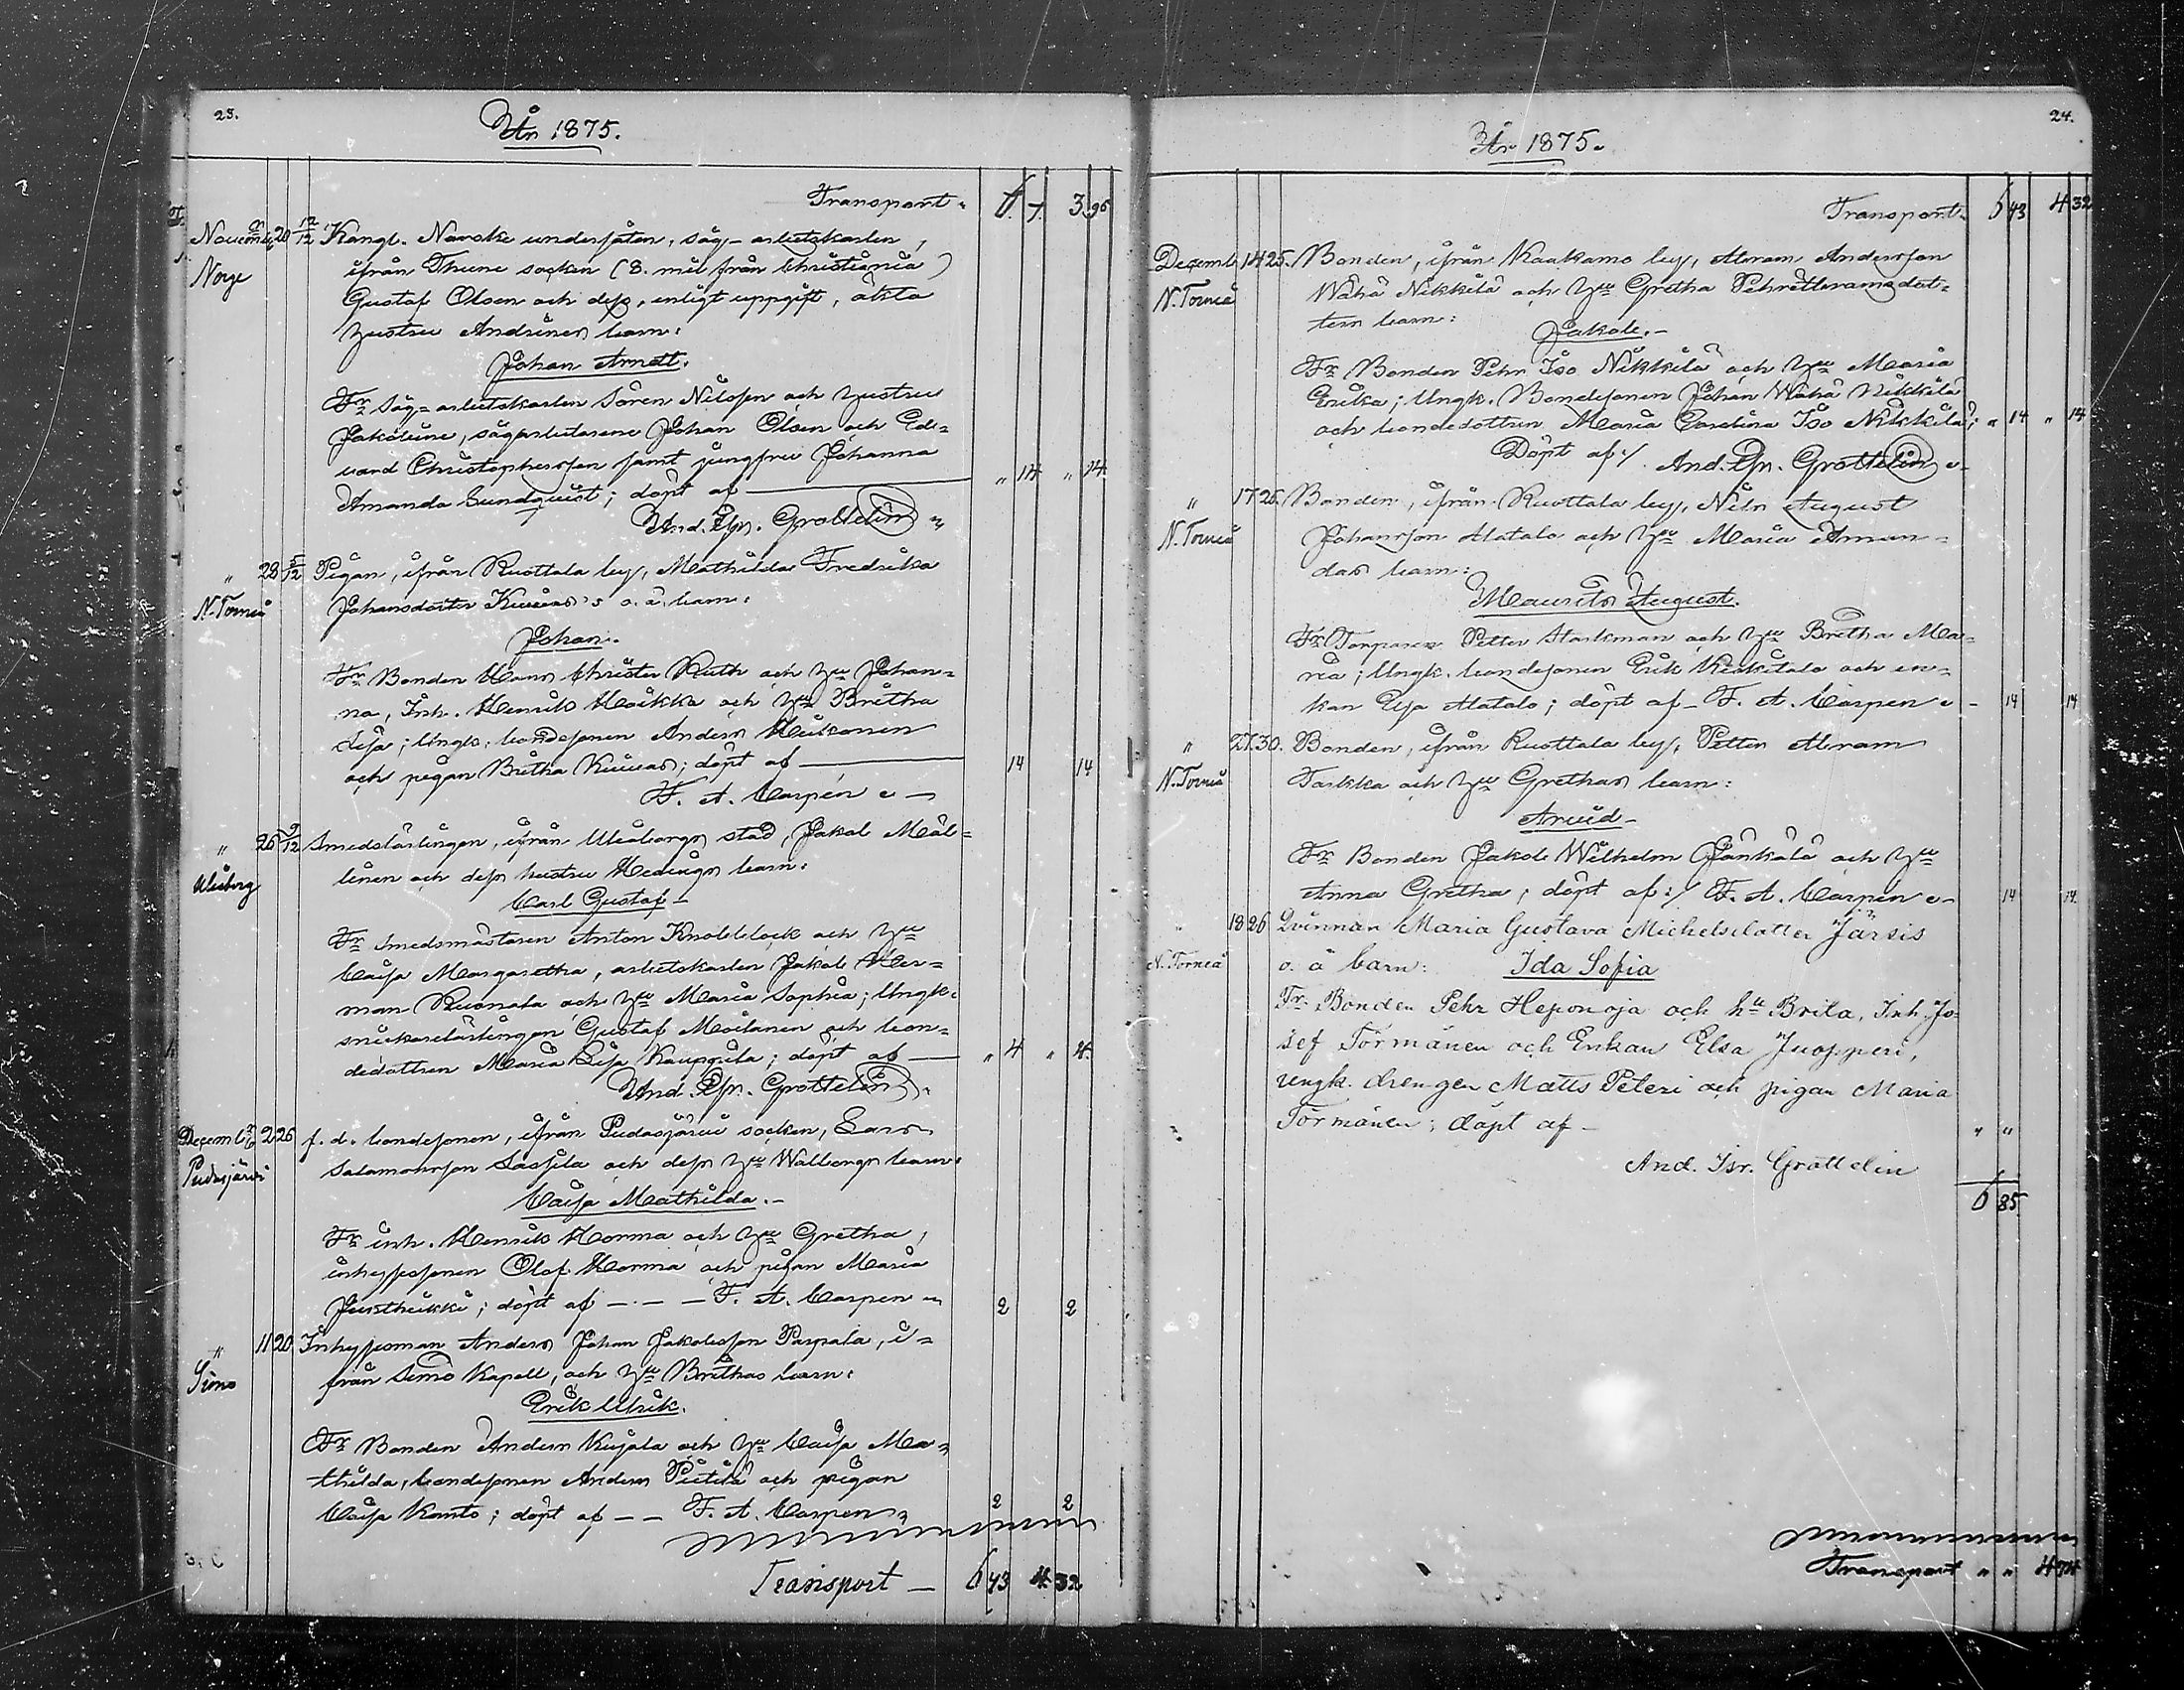 23.
År 1875.
Transport. 6. 7. 3 96
Novemb. 20 12/12 Kongl. Norske undersåten, såg-arbetskarlen,
Norge
ifrån Thune socken (8. mil från Christiania)
Gustaf Olsen och dess, enligt uppgift, äkta
hustru Andrines barn:
Johan Arndt.
Fr såg-arbetskarlen Sören Nilssen och hustru
Jakobine, sågarbetarene Johan Olsen och Ed-
vard Christophersen samt jungfru Johanna
Amanda Lundquist; döpt af — " 14 " 14.
And. Isr. Grottelin
" 23 5/12 Pigan, ifrån Ruottala by, Mathilda Fredrika
N. Torneå
Johansdotter Kuivas's o. ä. barn:
Johan.
Fr Bonden Hans Christer Ruth och hu Johan-
na, Inh. Henrik Hoikka och hu Britha
Lisa; Ungk. bondesonen Anders Heikonen
och pigan Britha Kuivas; döpt af — 14 14
F. A. Carpén
" 26 9/12 Smedslärlingen, ifrån Uleåborgs stad, Jakob Mäl-
Uleåborg
linen och dess hustru Hedvigs barn:
Carl Gustaf
Fr Smedsmästaren Anton Knobblock och hu
Caisa Margaretha, arbetskarlen Jakob Her-
man Ruonala och hu Maria Sophia; Ungk.
snickarelärlingen Gustaf Moilanen och bon-
dedottren Maria Lisa Kauppila; döpt af — " 4 " 4.
And. Isr. Grottelin
Decemb. 2 26 f. d. bondesonen, ifrån Pudasjärvi socken, Lars
Pudasjärvi
Salamonsson Sassila och dess hu Walborgs barn:
Caisa Mathilda.
Fr inh. Henrik Horma och hu Gretha,
inhysesonen Olof Horma och pigan Maria
; döpt af — F. A. Carpén 2 2
" 11 20 Inhysesman Anders Johan Jakobsson Paspala, i-
Simo
från Simo Kapell, och hu Brithas barn:
Erik Ulrik.
Fr Bonden Anders Kujala och hu Caisa Ma-
thilda, bondesonen Anders Pietilä och pigan
Caisa Kanto; döpt af — F. A. Carpén 2 2
Transport — 6 43 4 32
24.
År 1875.
Transport. 6 43 4 32
Decemb. 14 25. Bonden, ifrån Kaakamo by, Abram Andersson
N. Torneå
Wähä Nikkilä och hu Gretha Pehr Abramsdot-
ters barn:
Jakob.
Fr Bonden Pehr Iso Nikkilä och hu Maria
Erika; Ungk. Bondesonen Johan Wähä Nikkilä
och bondedottren Maria Carolina Iso Nikkilä; " 14 " 14
Döpt af: And. Isr. Grottelin
" 17 26. Bonden, ifrån Ruottala by, Nils August
N. Torneå
Johansson Alatalo och hu Maria Aman-
das barn:
Maurits August.
Fr Torparen Petter Starkman och hu Britha Ma-
ria; Ungk. bondesonen Erik Keskitalo och en-
kan Elsa Alatalo; döpt af — F. A. Carpén 14 14
" 27 30. Bonden, ifrån Ruottala by, Petter Abram
N. Torneå
Taskka och hu Grethas barn:
Arvid
Fr Bonden Jakob Wilhelm Jänkälä och hu
Anna Gretha; döpt af: F. A. Carpén 14 14
" 18 26 Qvinnan Maria Gustava Michelsdotter Järsis
N. Torneå
o. ä barn: Ida Sofia
Fr. Bonden Pehr Heponoja och hu Brita, Inh. Jo-
sef Törmänen och Enkan Elsa Juopperi,
ungk. drengen Matts Peteri och pigan Maria
Törmänen; döpt af — " "
And. Isr. Grottelin
6 85
Transport " " 4 74